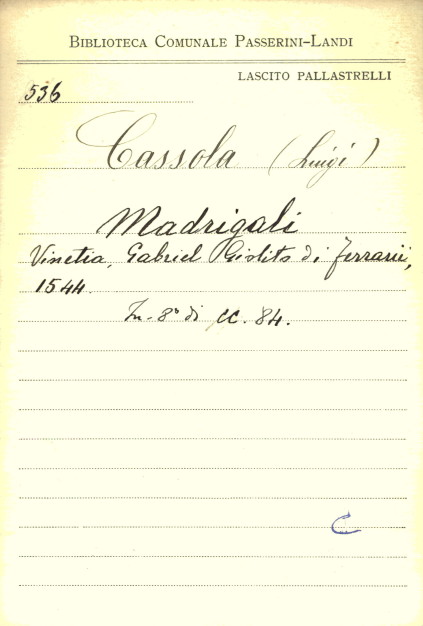 BIBLIOTECA COMUNALE PASSERINI-LANDI
LASCITO PALLASTRELLI
536
Cassola (Luigi)
Madrigali
Vinetia, Gabriel Giolito di Ferrarii,
1544.
In-8º di CC. 84.
C